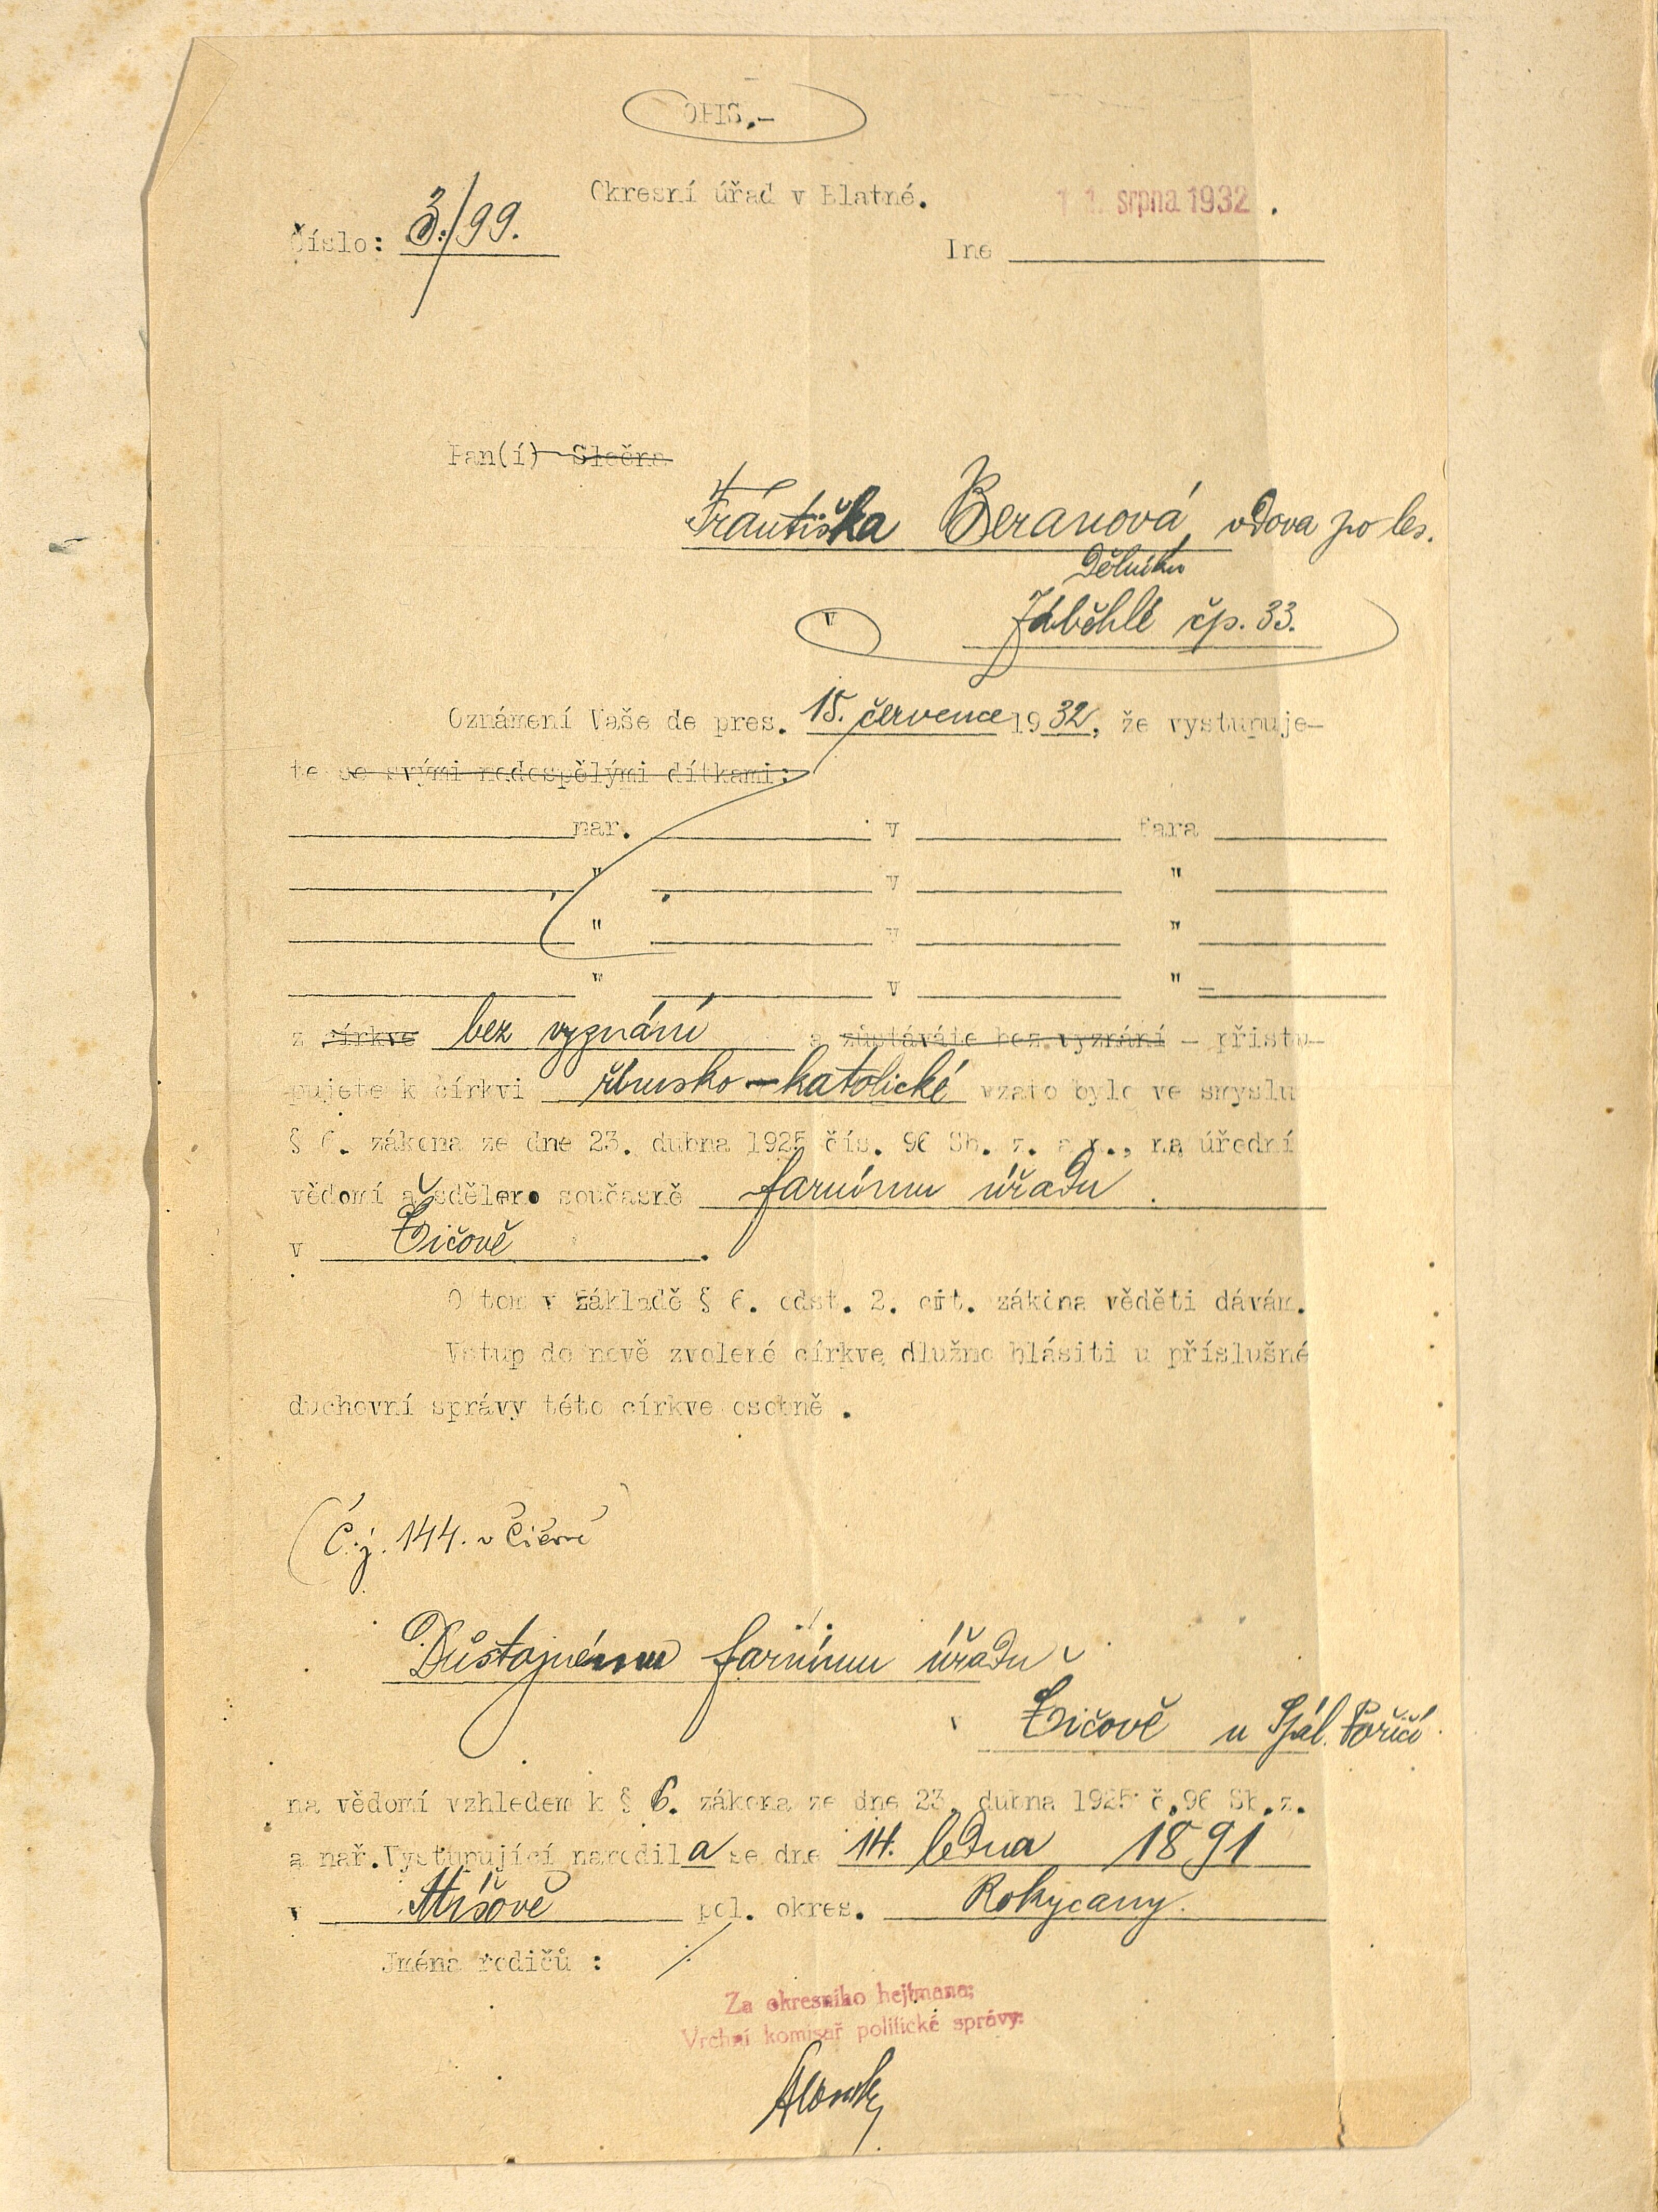 OPIS.-
Okresní úřad v Blatné.
11. srpna 1932.
Číslo: 3./99.
Dne
Pan(í) Slečna
Františka Beranová, vdova po les.
dělníku
v Záběhlé čp. 33.
Oznámení Vaše de pres. 15. července 1932, že vystupuje-
te se svými nedospělými dítkami:
nar. v fara
" v "
" v "
" v " -
z církve bez vyznání a zůstáváte bez vyznání - přistu-
pujete k církvi římsko-katolické vzato bylo ve smyslu
§ 6. zákona ze dne 23. dubna 1925 čís. 96 Sb. z. a n., na úřední
vědomí a sděleno současně farnímu úřadu
v Číčově.
O tom v základě § 6. odst. 2. cit. zákona věděti dávám.
Vstup do nově zvolené církve dlužno hlásiti u příslušné
duchovní správy této církve osobně.
Č.j. 144. v
Důstojnému farnímu úřadu
v Číčově u Spál. Poříčí
na vědomí vzhledem k § 6. zákona ze dne 23. dubna 1925 č.96 Sb.z.
a nař. Vystupující narodila se dne 14. ledna 1891
v Míšově pol. okres. Rokycany.
Jména rodičů :
Za okresního hejtmana:
Vrchní komisař politické správy: